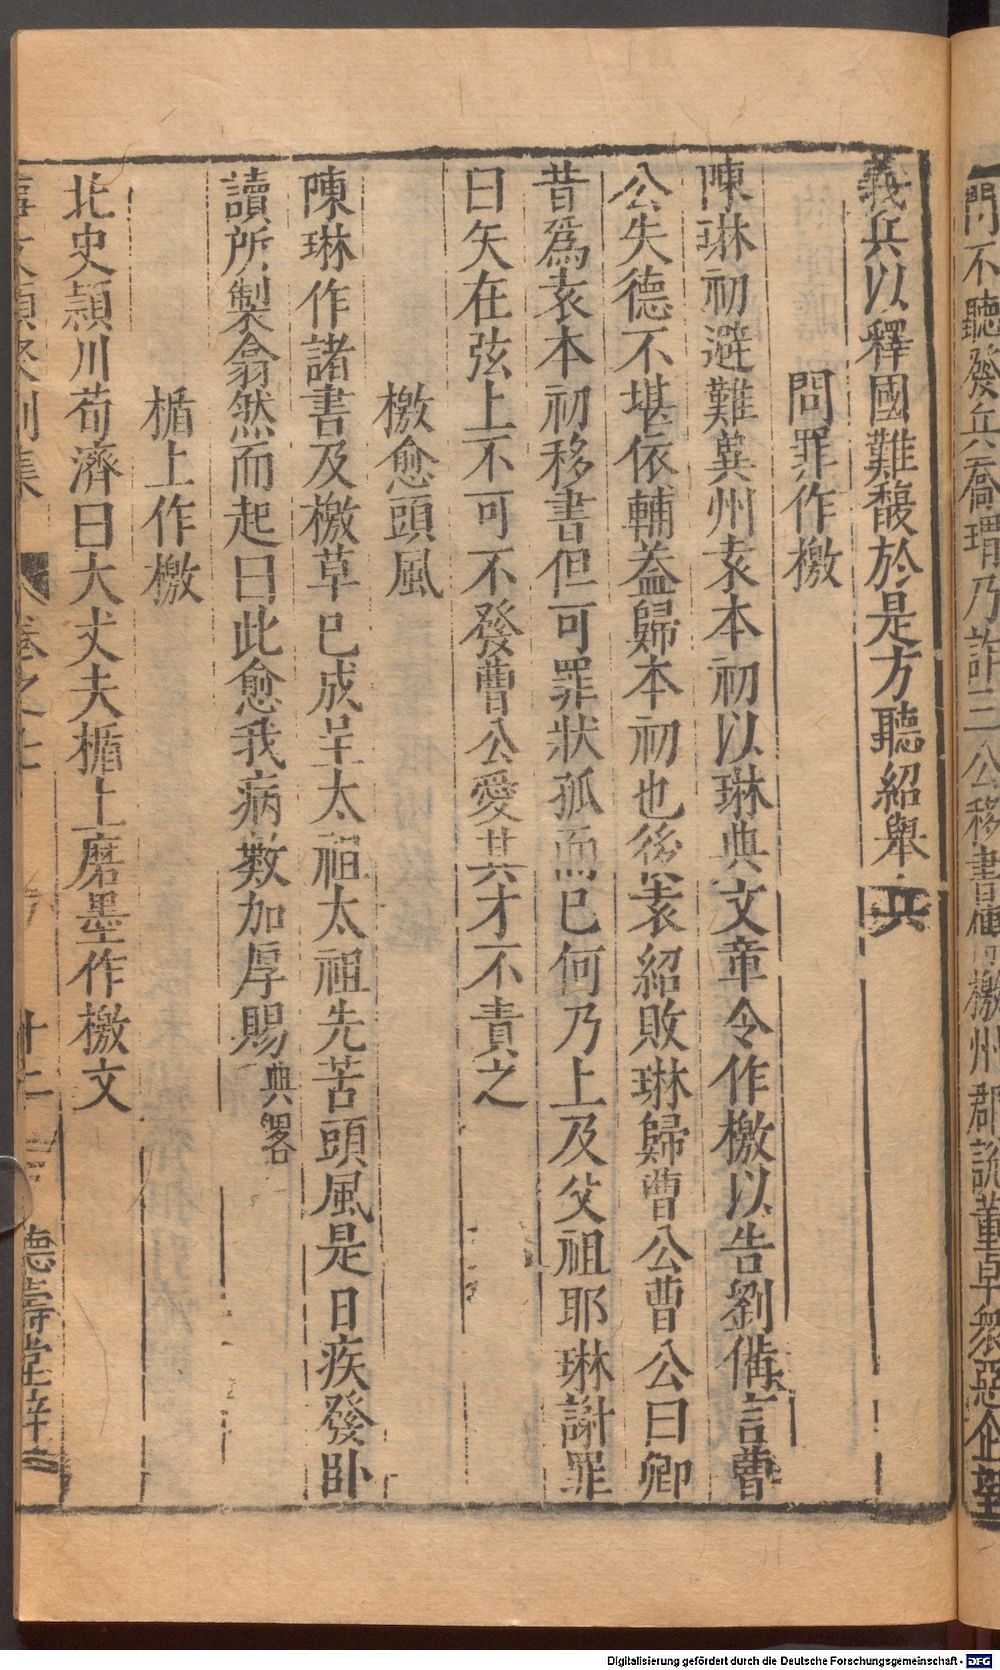 門不聽發兵喬瑁乃詐三公移書傳檄州郡說董卓眾惡企望
義兵以釋國難馥於是方聽紹舉兵
問罪作檄
陳琳初避難兾州袁本初以琳典文章令作檄以告劉備言曹
公失德不堪依輔葢歸本初也後袁紹敗琳歸曹公曹公曰卿
昔爲袁本初移書但可罪狀孤而已何乃上及父祖耶琳謝罪
曰矢在弦上不可不發曹公愛其才不責之
檄愈頭風
陳琳作諸書及檄草已成呈太祖太祖先苦頭風是日疾發卧
讀所製翕然而起曰此愈我病數加厚賜典畧
楯上作檄
北史潁川荀濟曰大丈夫楯上磨墨作檄文
事文類聚別集 卷之七 十二 德壽堂梓
Digitalisierung gefördert durch die Deutsche Forschungsgemeinschaft - DFG